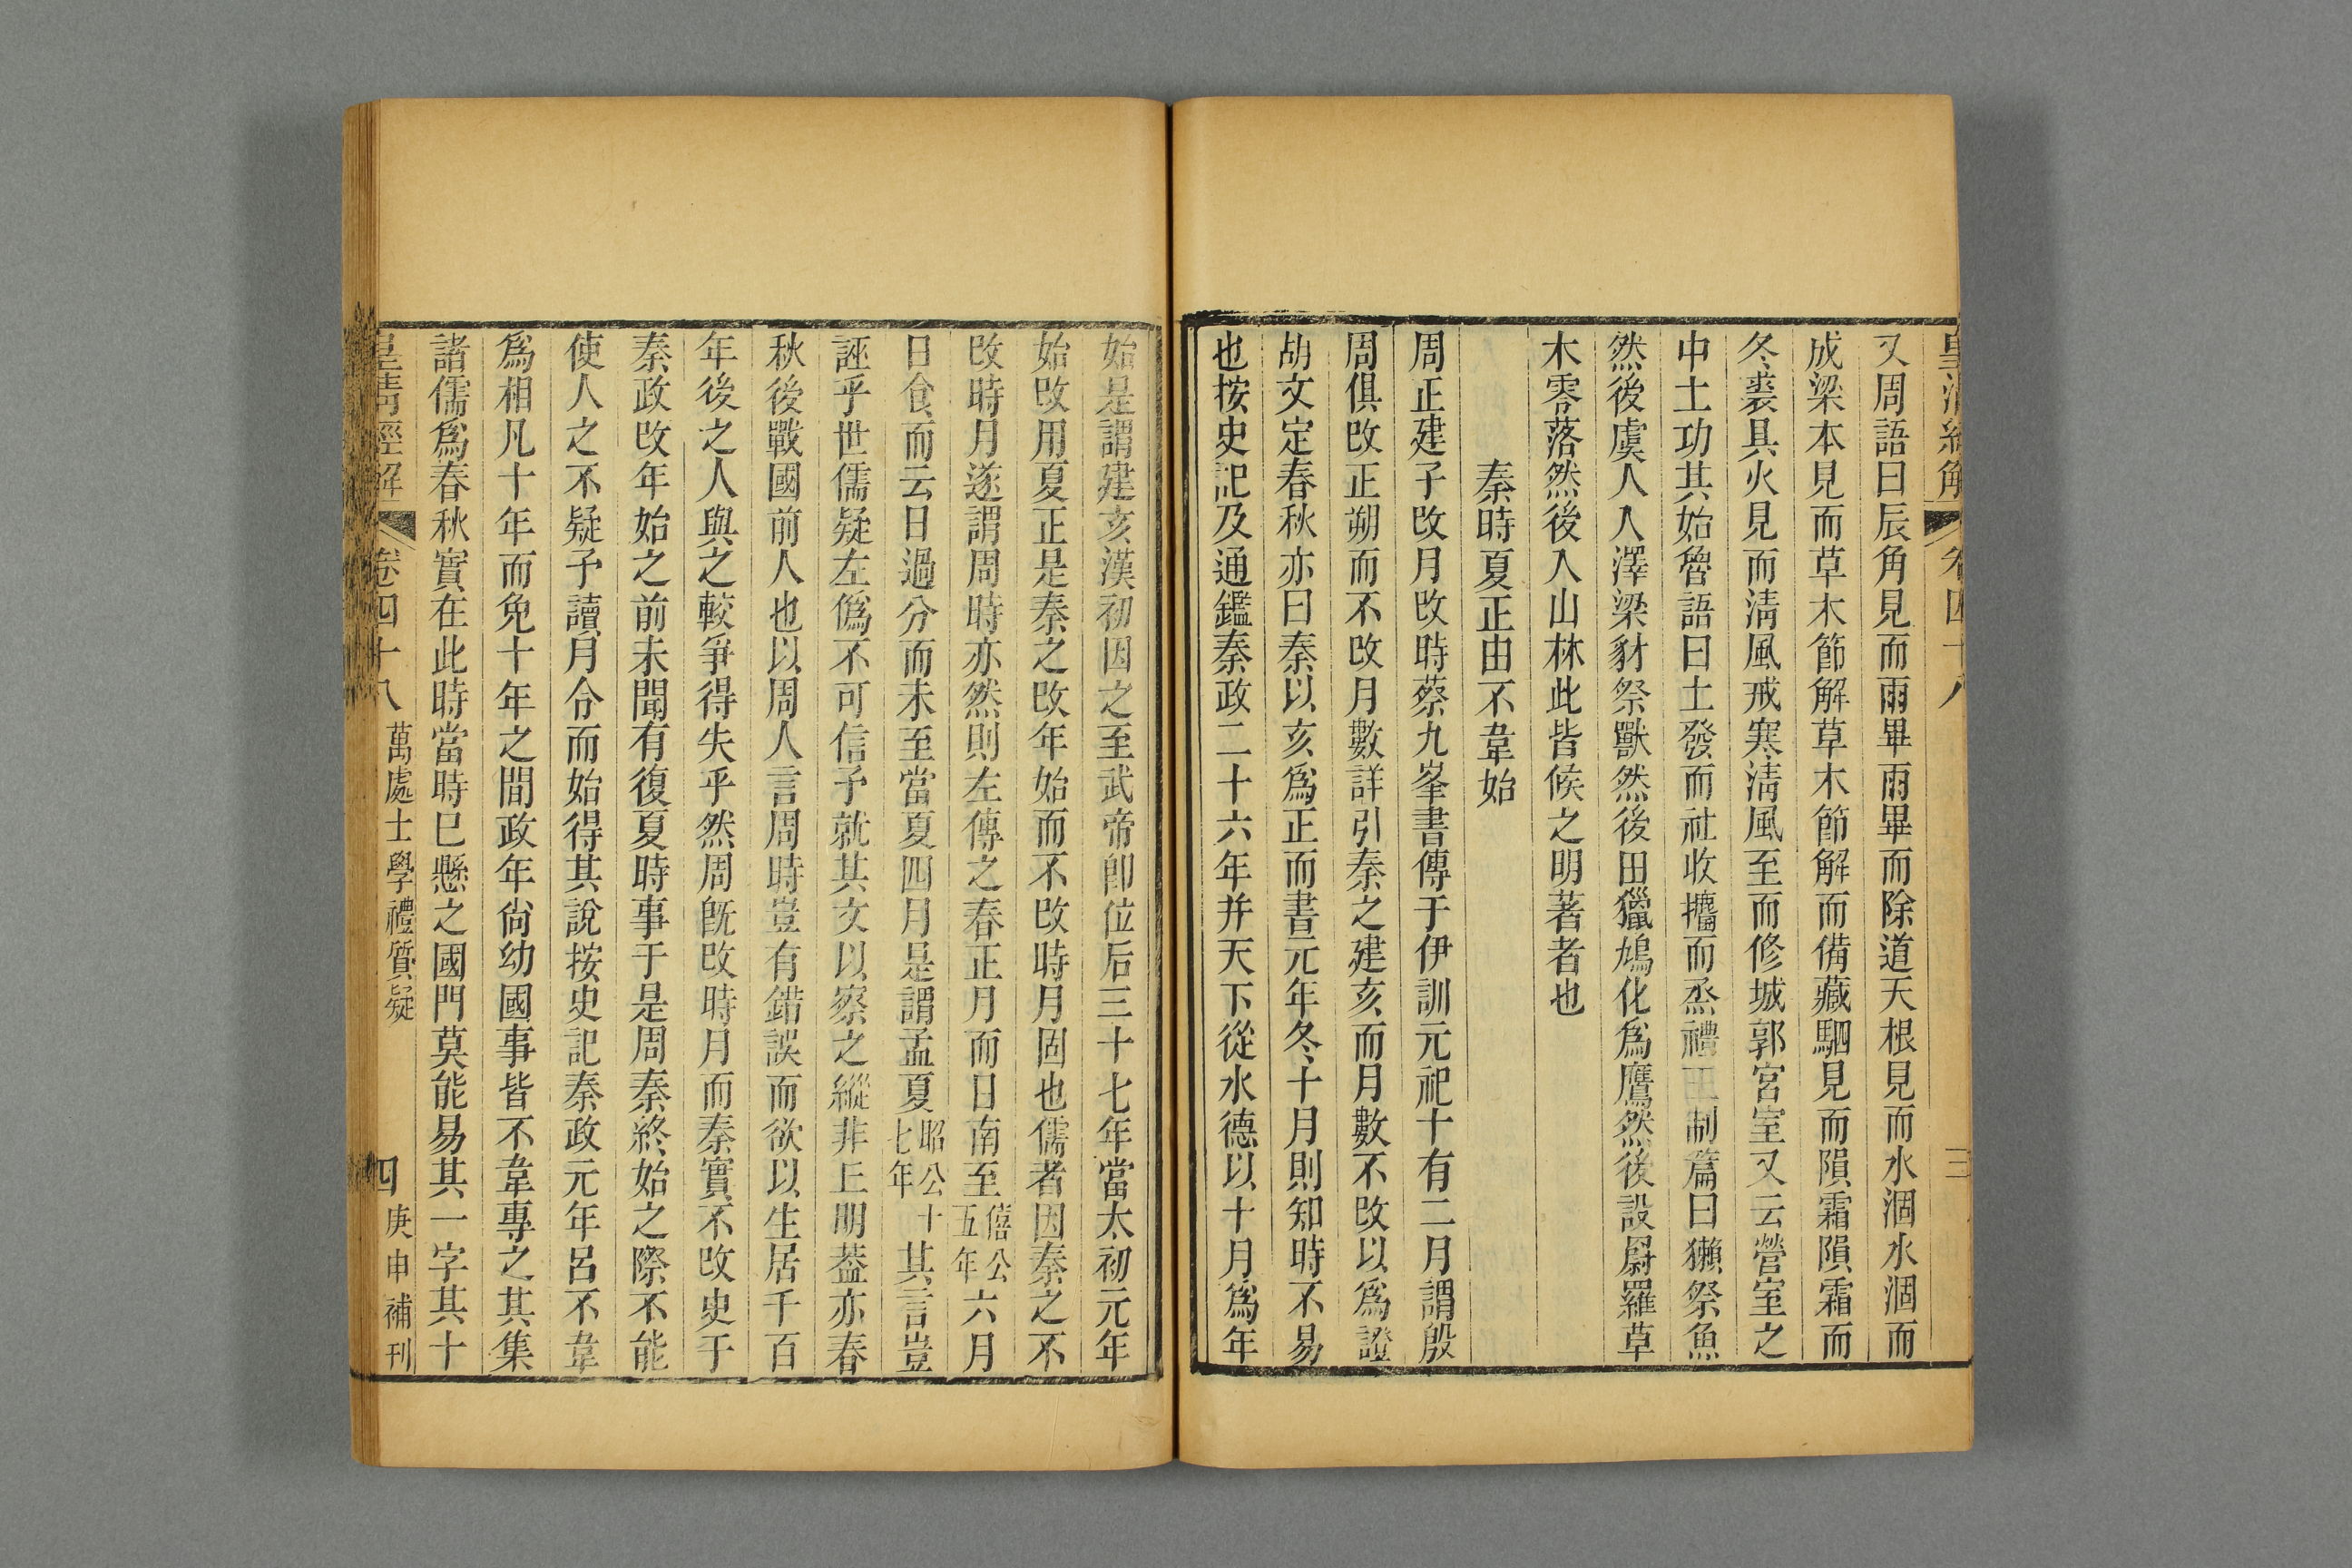 皇清經解 卷四十八 三
又周語曰辰角見而雨畢雨畢而除道天根見而水涸水涸而
成梁本見而草木節解草木節解而備藏駟見而隕霜隕霜而
冬裘具火見而淸風戒寒淸風至而修城郭宮室又云營室之
中土功其始魯語曰土發而社收攟而烝禮王制篇曰獺祭魚
然後虞人入澤梁豺祭獸然後田獵鳩化爲鷹然後設罻羅草
木零落然後入山林此皆候之明著者也
秦時夏正由不韋始
周正建子改月改時蔡九峯書傳于伊訓元祀十有二月謂殷
周俱改正朔而不改月數詳引秦之建亥而月數不改以爲證
胡文定春秋亦曰秦以亥爲正而書元年冬十月則知時不易
也按史記及通鑑秦政二十六年并天下從水德以十月爲年
始是謂建亥漢初因之至武帝卽位后三十七年當太初元年
始改用夏正是秦之改年始而不改時月固也儒者因秦之不
改時月遂謂周時亦然則左傳之春正月而日南至僖公五年六月
日食而云日過分而未至當夏四月是謂孟夏昭公十七年其言豈
誣乎世儒疑左僞不可信予就其文以察之縱非丘明葢亦春
秋後戰國前人也以周人言周時豈有錯誤而欲以生居千百
年後之人與之較爭得失乎然周旣改時月而秦實不改史于
秦政改年始之前未聞有復夏時事于是周秦終始之際不能
使人之不疑予讀月令而始得其說按史記秦政元年呂不韋
爲相凡十年而免十年之間政年尙幼國事皆不韋專之其集
諸儒爲春秋實在此時當時已懸之國門莫能易其一字其十
皇淸經解 卷四十八 萬處士學禮質疑 四 庚申補刊